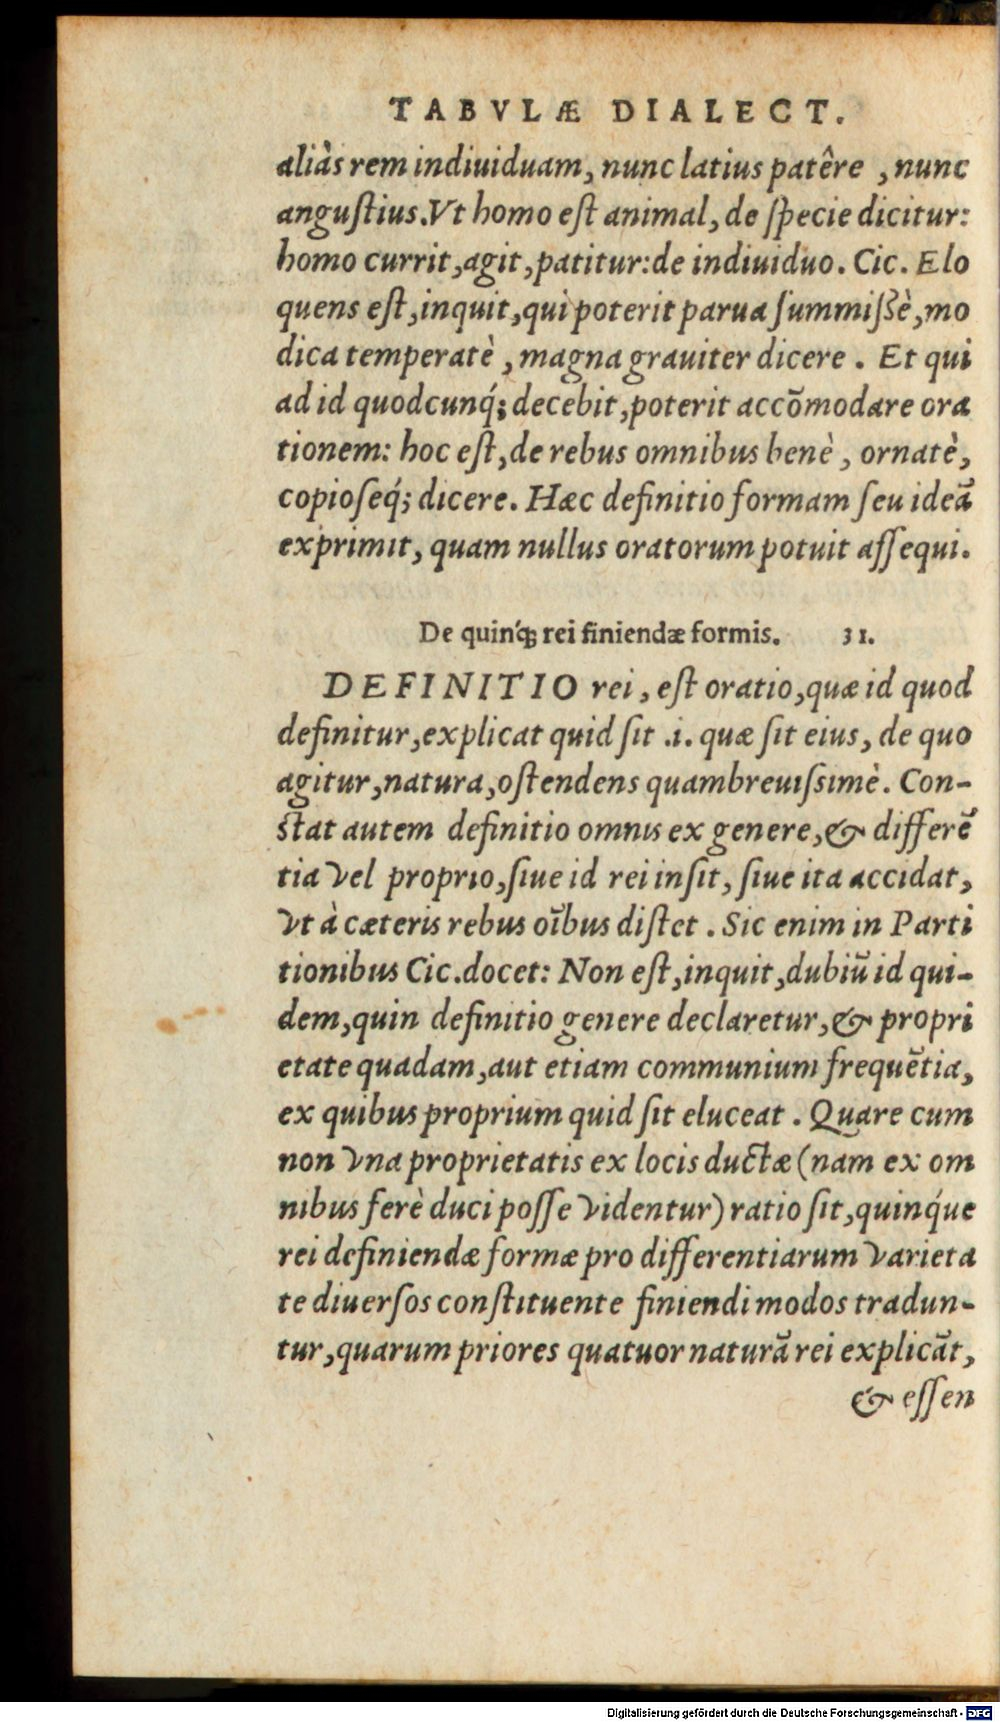 TABVLÆ DIALECT.
aliàs rem indiuiduam, nunc latius patêre , nunc
anguſtius.Vt homo eſt animal, de ſpecie dicitur:
homo currit,agit,patitur:de indiuiduo. Cic. Elo
quens eſt,inquit,qui poterit parua ſummiſsè,mo
dica temperatè , magna grauiter dicere . Et qui
ad id quodcunq́; decebit,poterit accõmodare ora
tionem: hoc eſt,de rebus omnibus benè , ornatè,
copioſeq́; dicere. Hæc definitio formam ſeu ideã
exprimit, quam nullus oratorum potuit aſſequi.
De quinq́; rei finiendæ formis. 31.
DEFINITIO rei, eſt oratio,quæ id quod
definitur,explicat quid ſit .i. quæ ſit eius, de quo
agitur,natura,oſtendens quambreuiſsimè. Con-
ſtat autem definitio omnis ex genere,& differẽ
tia vel proprio,ſiue id rei inſit, ſiue ita accidat,
vt à cæteris rebus oĩbus diſtet . Sic enim in Parti
tionibus Cic.docet: Non eſt,inquit,dubiũ id qui-
dem,quin definitio genere declaretur,& propri
etate quadam,aut etiam communium frequẽtia,
ex quibus proprium quid ſit eluceat . Quare cum
non vna proprietatis ex locis ductæ (nam ex om
nibus ferè duci poſſe videntur) ratio ſit,quinq́ue
rei definiendæ formæ pro differentiarum varieta
te diuerſos conſtituente finiendi modos tradun-
tur,quarum priores quatuor naturã rei explicãt,
& eſſen
Digitalisierung gefördert durch die Deutsche Forschungsgemeinschaft - DFG